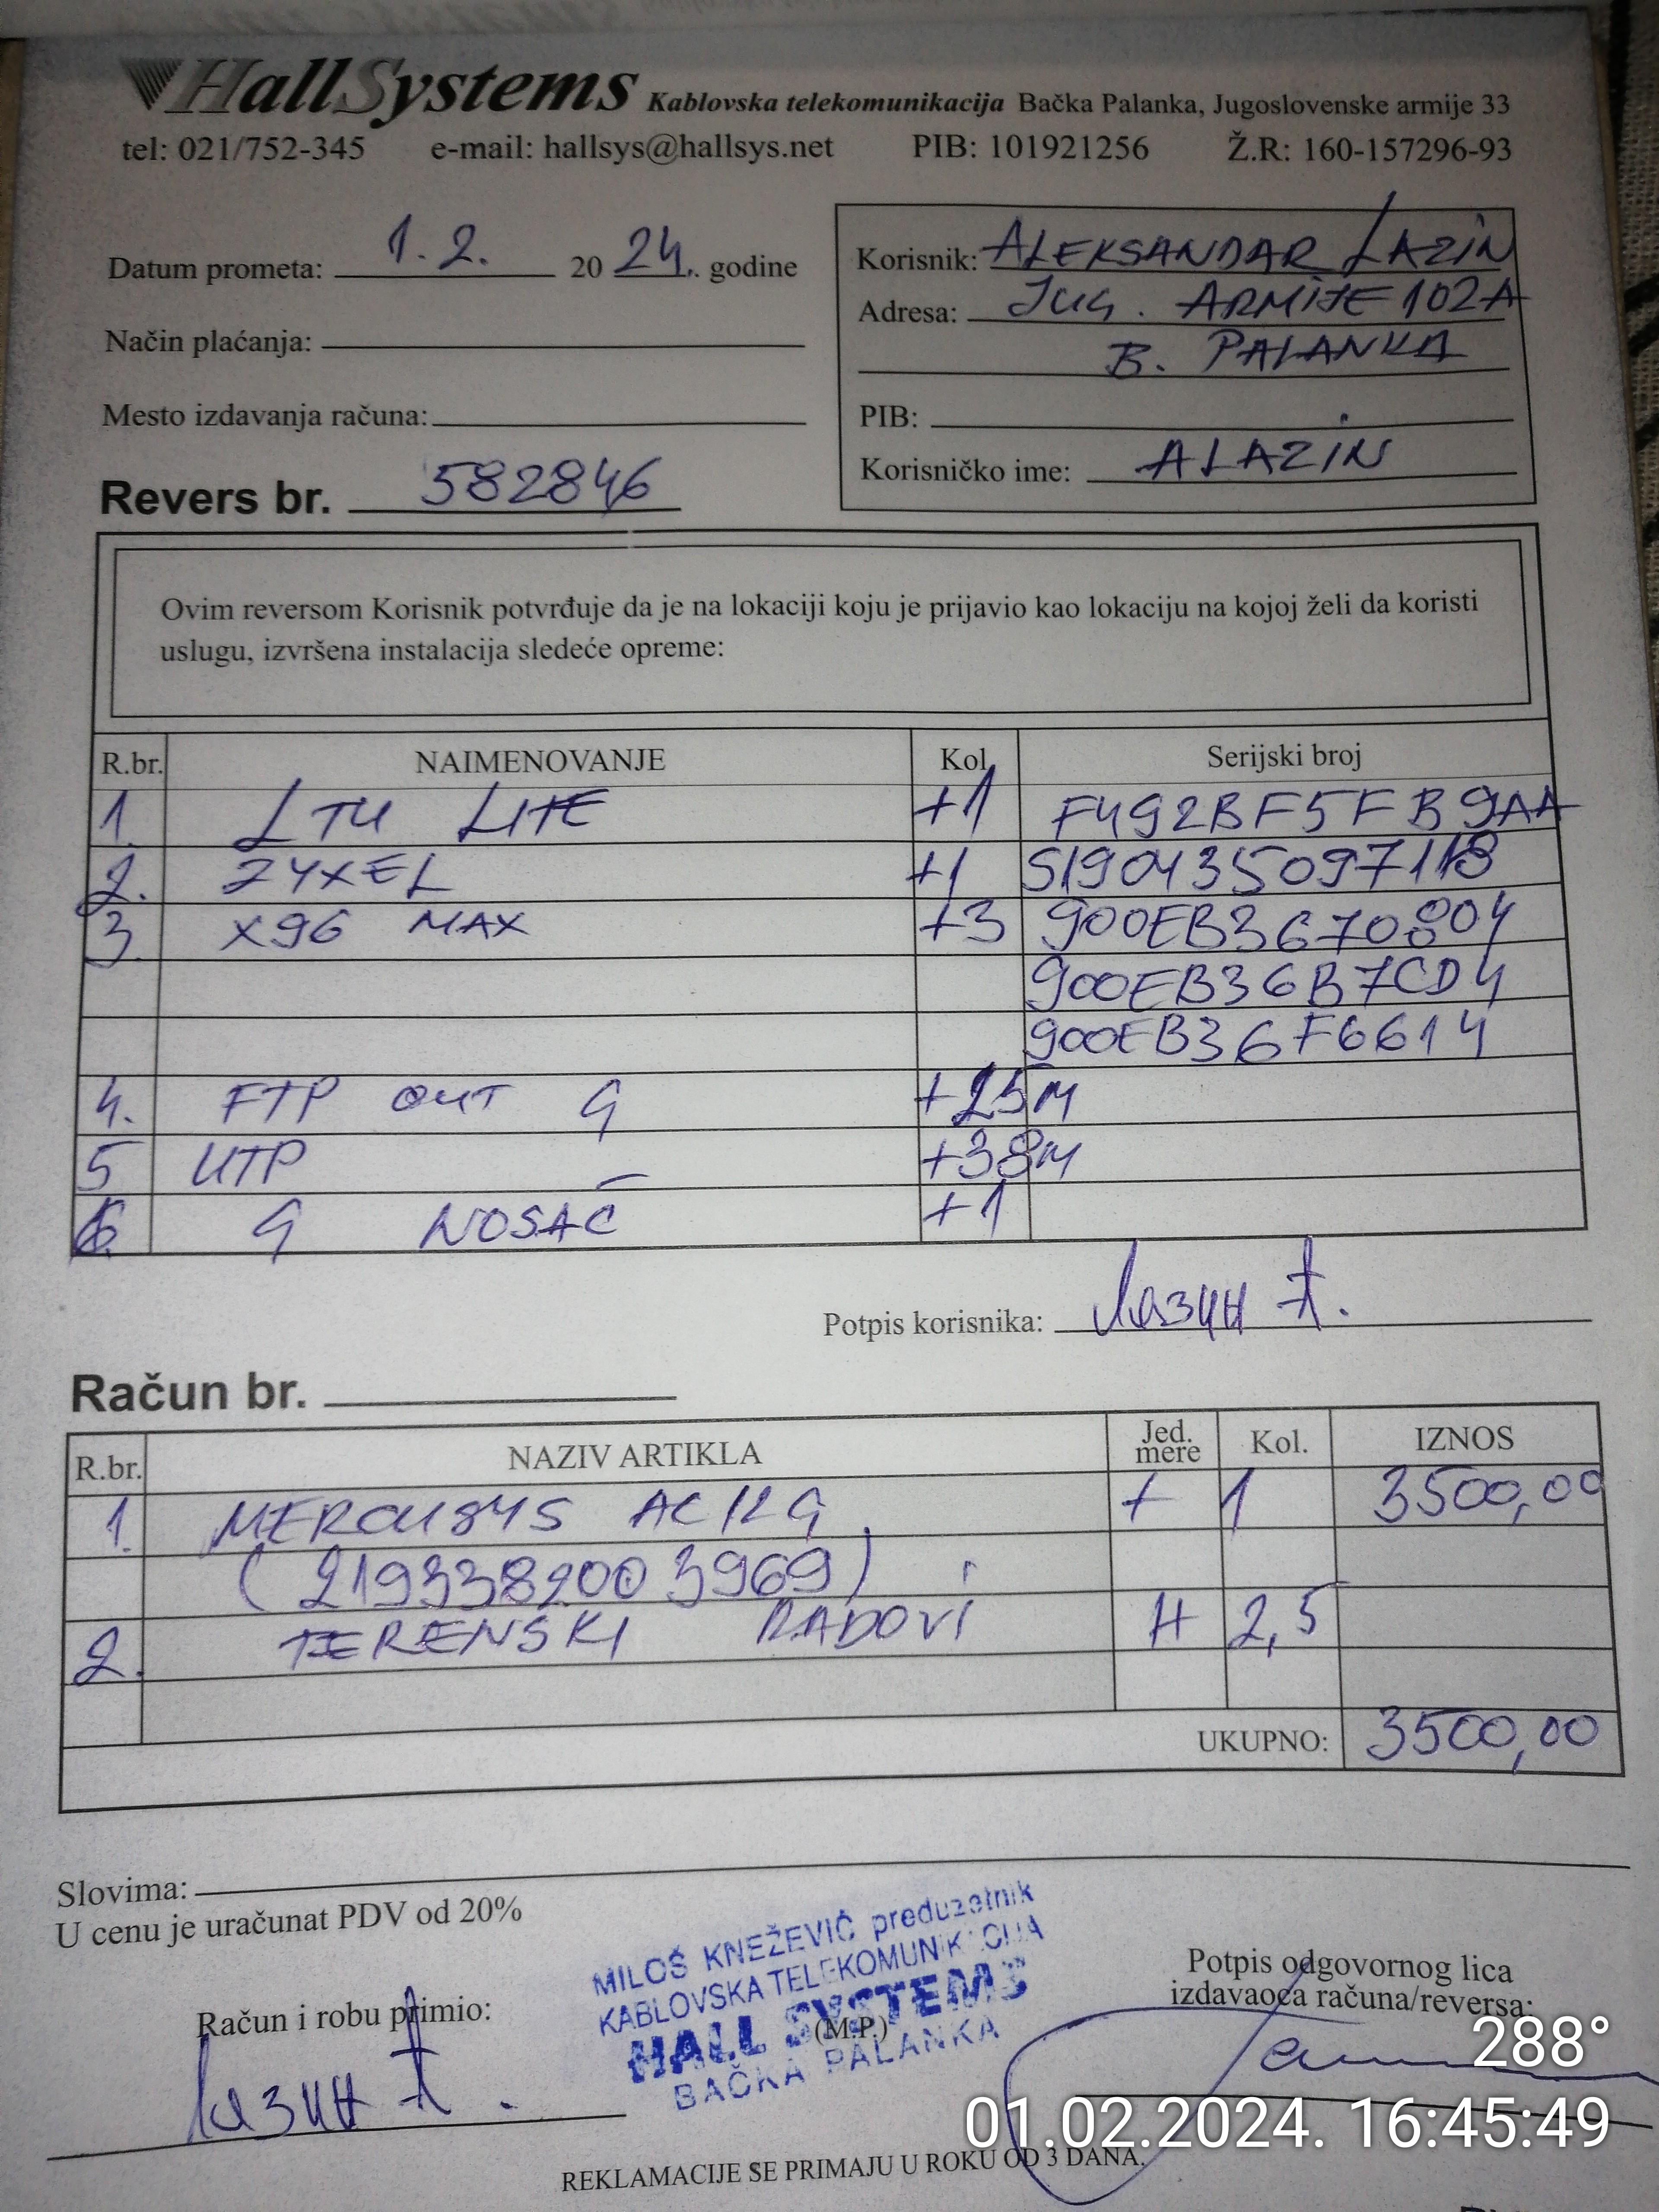 HallSystems Kablovska telekomunikacija Bačka Palanka, Jugoslovenske armije 33
tel: 021/752-345 e-mail: hallsys@hallsys.net PIB: 101921256 Ž.R: 160-157296-93
Datum prometa: 1.2. 2024. godine
Način plaćanja:
Mesto izdavanja računa:
Revers br. 582846
Korisnik: ALEKSANDAR LAZIN
Adresa: JUG. ARMIJE 102A
B. PALANKA
PIB:
Korisničko ime: ALAZIN
Ovim reversom Korisnik potvrđuje da je na lokaciji koju je prijavio kao lokaciju na kojoj želi da koristi
uslugu, izvršena instalacija sledeće opreme:
R.br. NAIMENOVANJE Kol. Serijski broj
1. LTU LITE +1 F492BF5FB9AA
2. ZYXEL +1 S190435097118
3. X96 MAX +3 900EB3670804
900EB36B7CD4
900EB36F6614
4. FTP OUT G +25M
5 UTP +38M
6. G NOSAČ +1
Potpis korisnika: Лазин А.
Račun br.
R.br. NAZIV ARTIKLA Jed. mere Kol. IZNOS
1. MERCUSYS AC12G + 1 3500,00
(2193382003969)
2. TERENSKI RADOVI H 2,5
UKUPNO: 3500,00
Slovima:
U cenu je uračunat PDV od 20%
MILOŠ KNEŽEVIĆ preduzetnik
KABLOVSKA TELEKOMUNIKACIJA
HALL SYSTEMS
(M.P.)
BAČKA PALANKA
Račun i robu primio:
Лазин А.
Potpis odgovornog lica
izdavaoca računa/reversa:
288°
01.02.2024. 16:45:49
REKLAMACIJE SE PRIMAJU U ROKU OD 3 DANA.